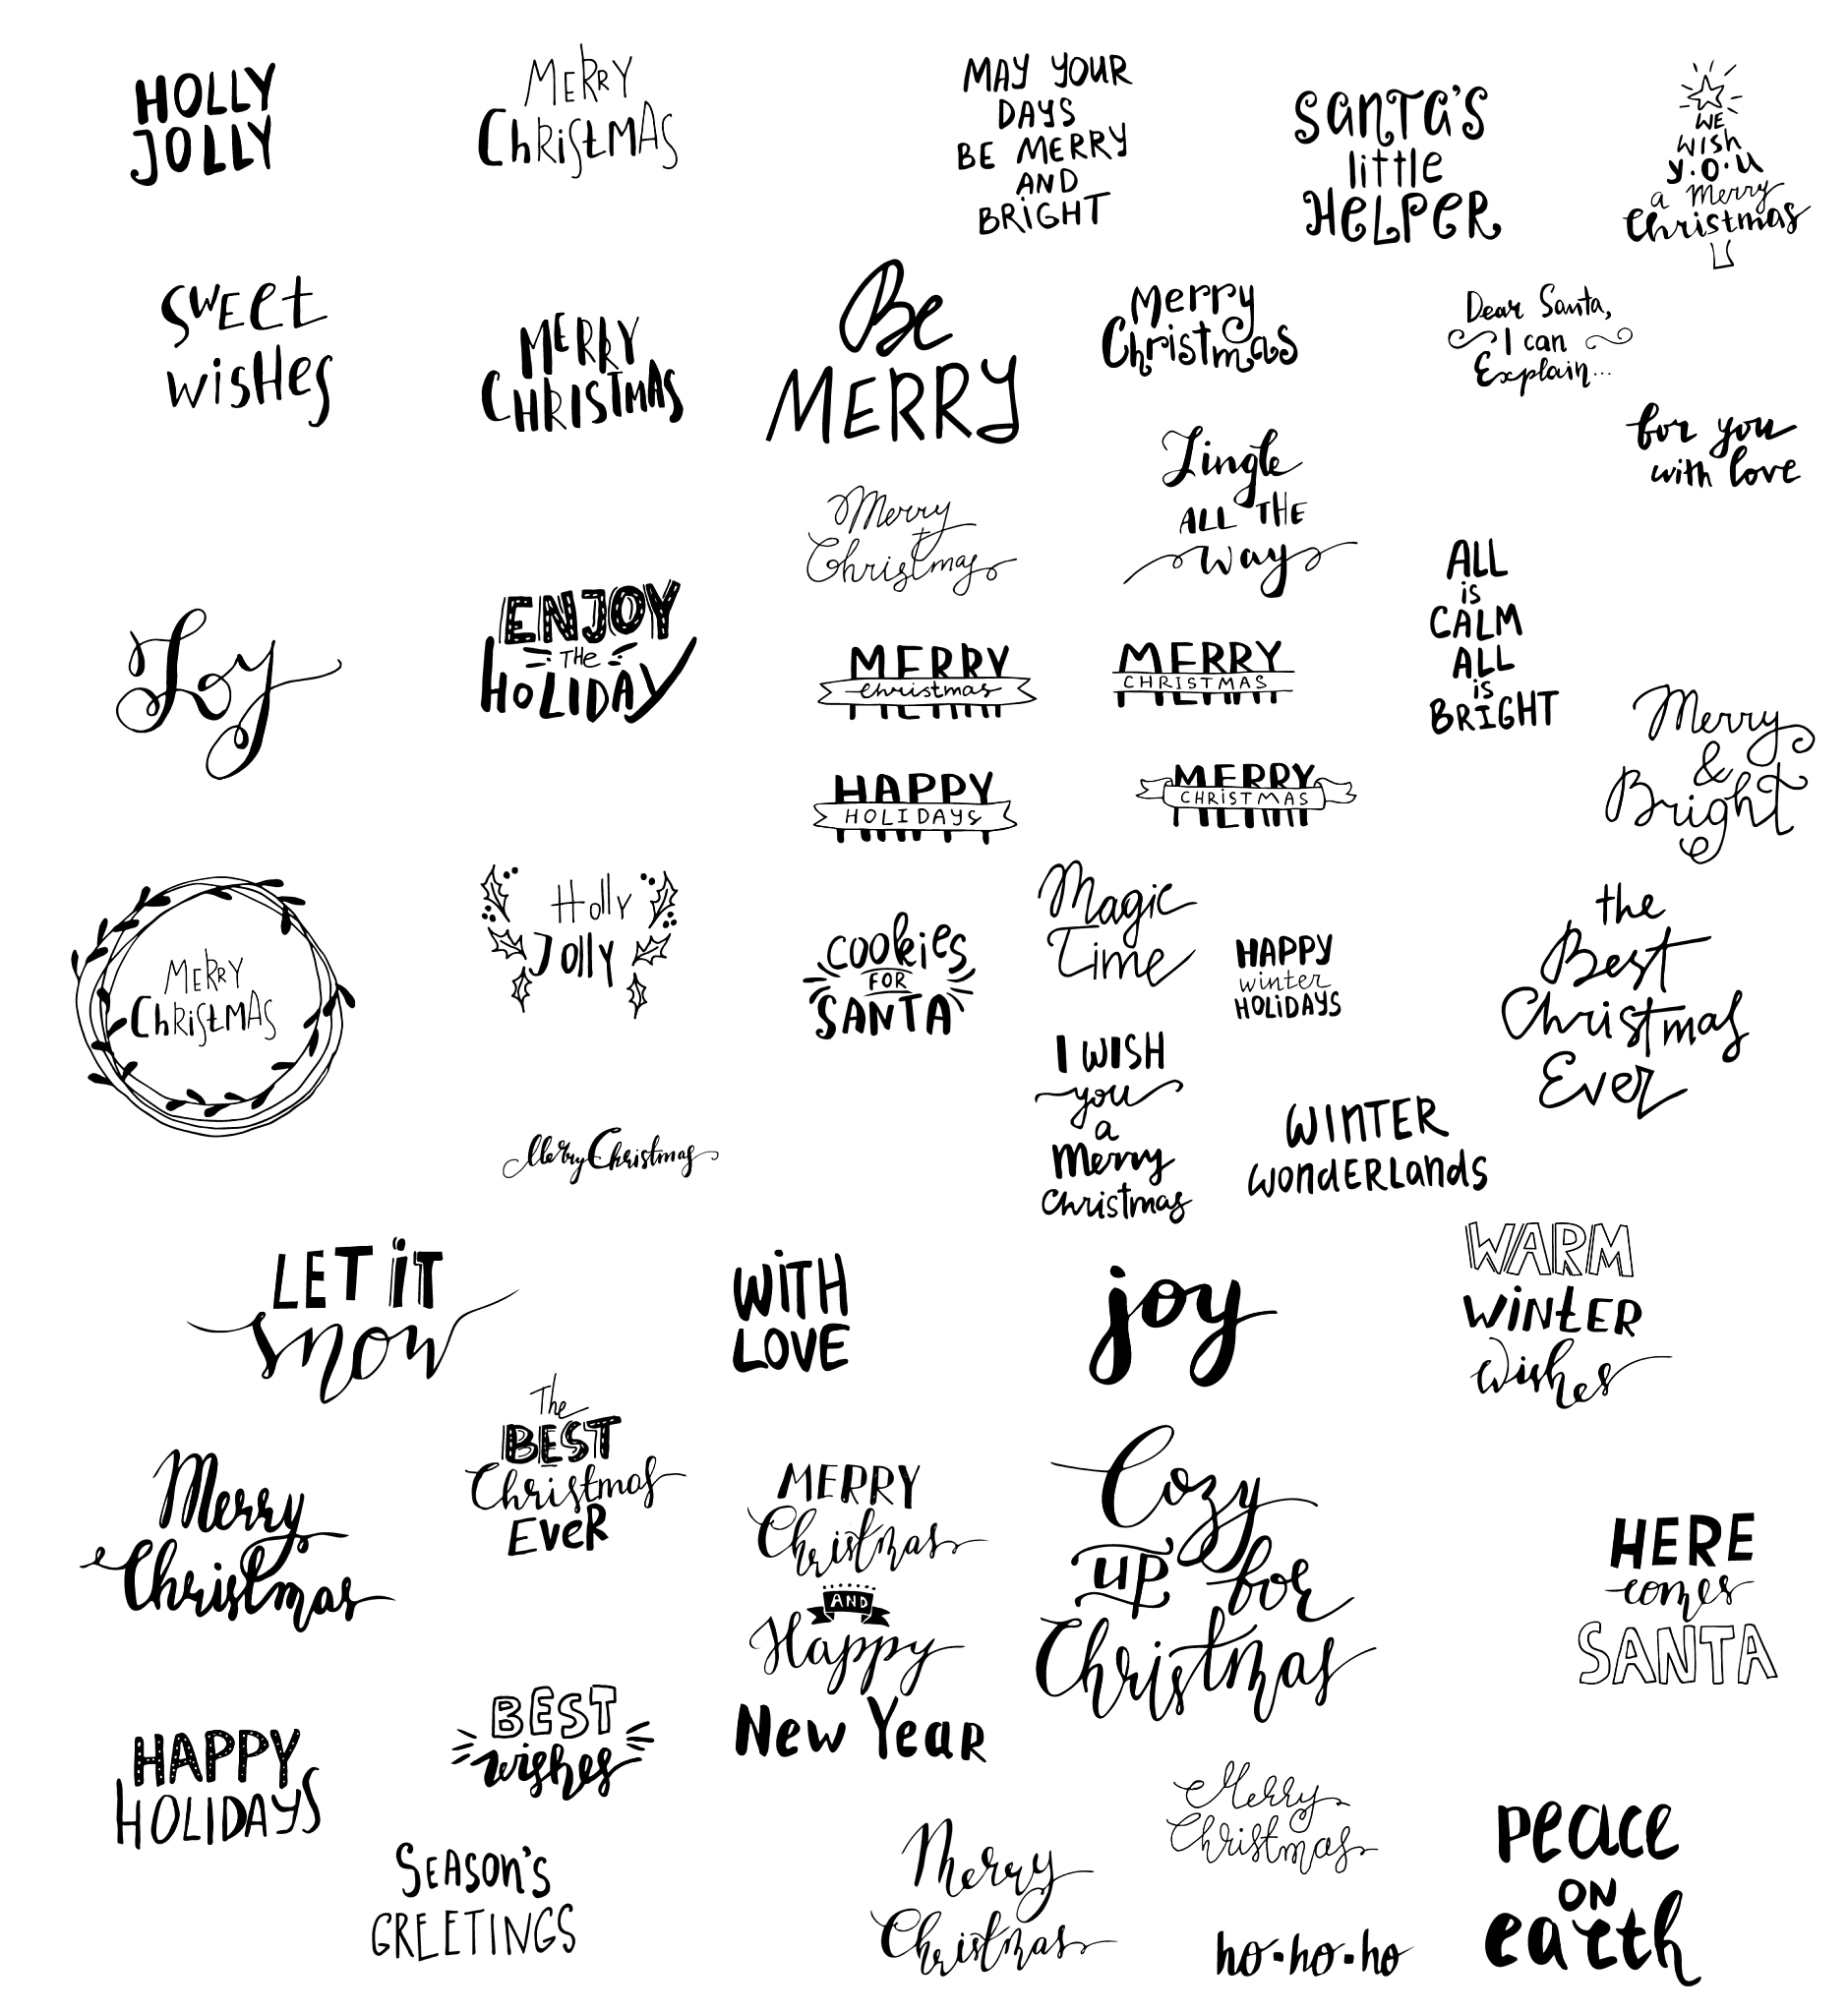 HOLLY
JOLLY
MERRY
ChRiStMAS
MAY YOUR
DAYS
BE MERRY
AND
BRiGHT
SANTA'S
little
HELPER
WE
wish
y.o.u
a Merry
Christmas
SWEEt
wisHes
MERRY
CHRISTMAS
Be
MERRY
Merry
Christmas
Dear Santa,
I can
Explain...
for you
with love
Jingle
ALL THE
way
Merry
Christmas
Joy
ENJOY
THe
HOLIDAY
MERRY
christmas
MERRY
CHRISTMAS
ALL
is
CALM
ALL
is
BRIGHT
Merry
&
Bright
HAPPY
HOLIDAYS
MERRY
CHRiSTMAS
MERRY
ChRiStMAS
Holly
Jolly
COOkiES
FOR
SANTA
Magic
Time
HAPPY
winter
HOLiDAYS
the
Best
Christmas
Ever
I WISH
you
a
Merry
Christmas
WINTER
WONdERLANds
Merry Christmas
LET iT
snow
WiTH
LOVE
joy
WARM
WiNtER
Wishes
The
BEST
Christmas
EVeR
Merry
Christmas
MERRY
Christmas
AND
Happy
New Year
Cozy
up for
Christmas
HERE
comes
SANTA
HAPPY
HOLIDAYS
BEST
wishes
SEASON'S
GREETINGS
Merry
Christmas
Merry
Christmas
ho·ho·ho
peace
ON
earth